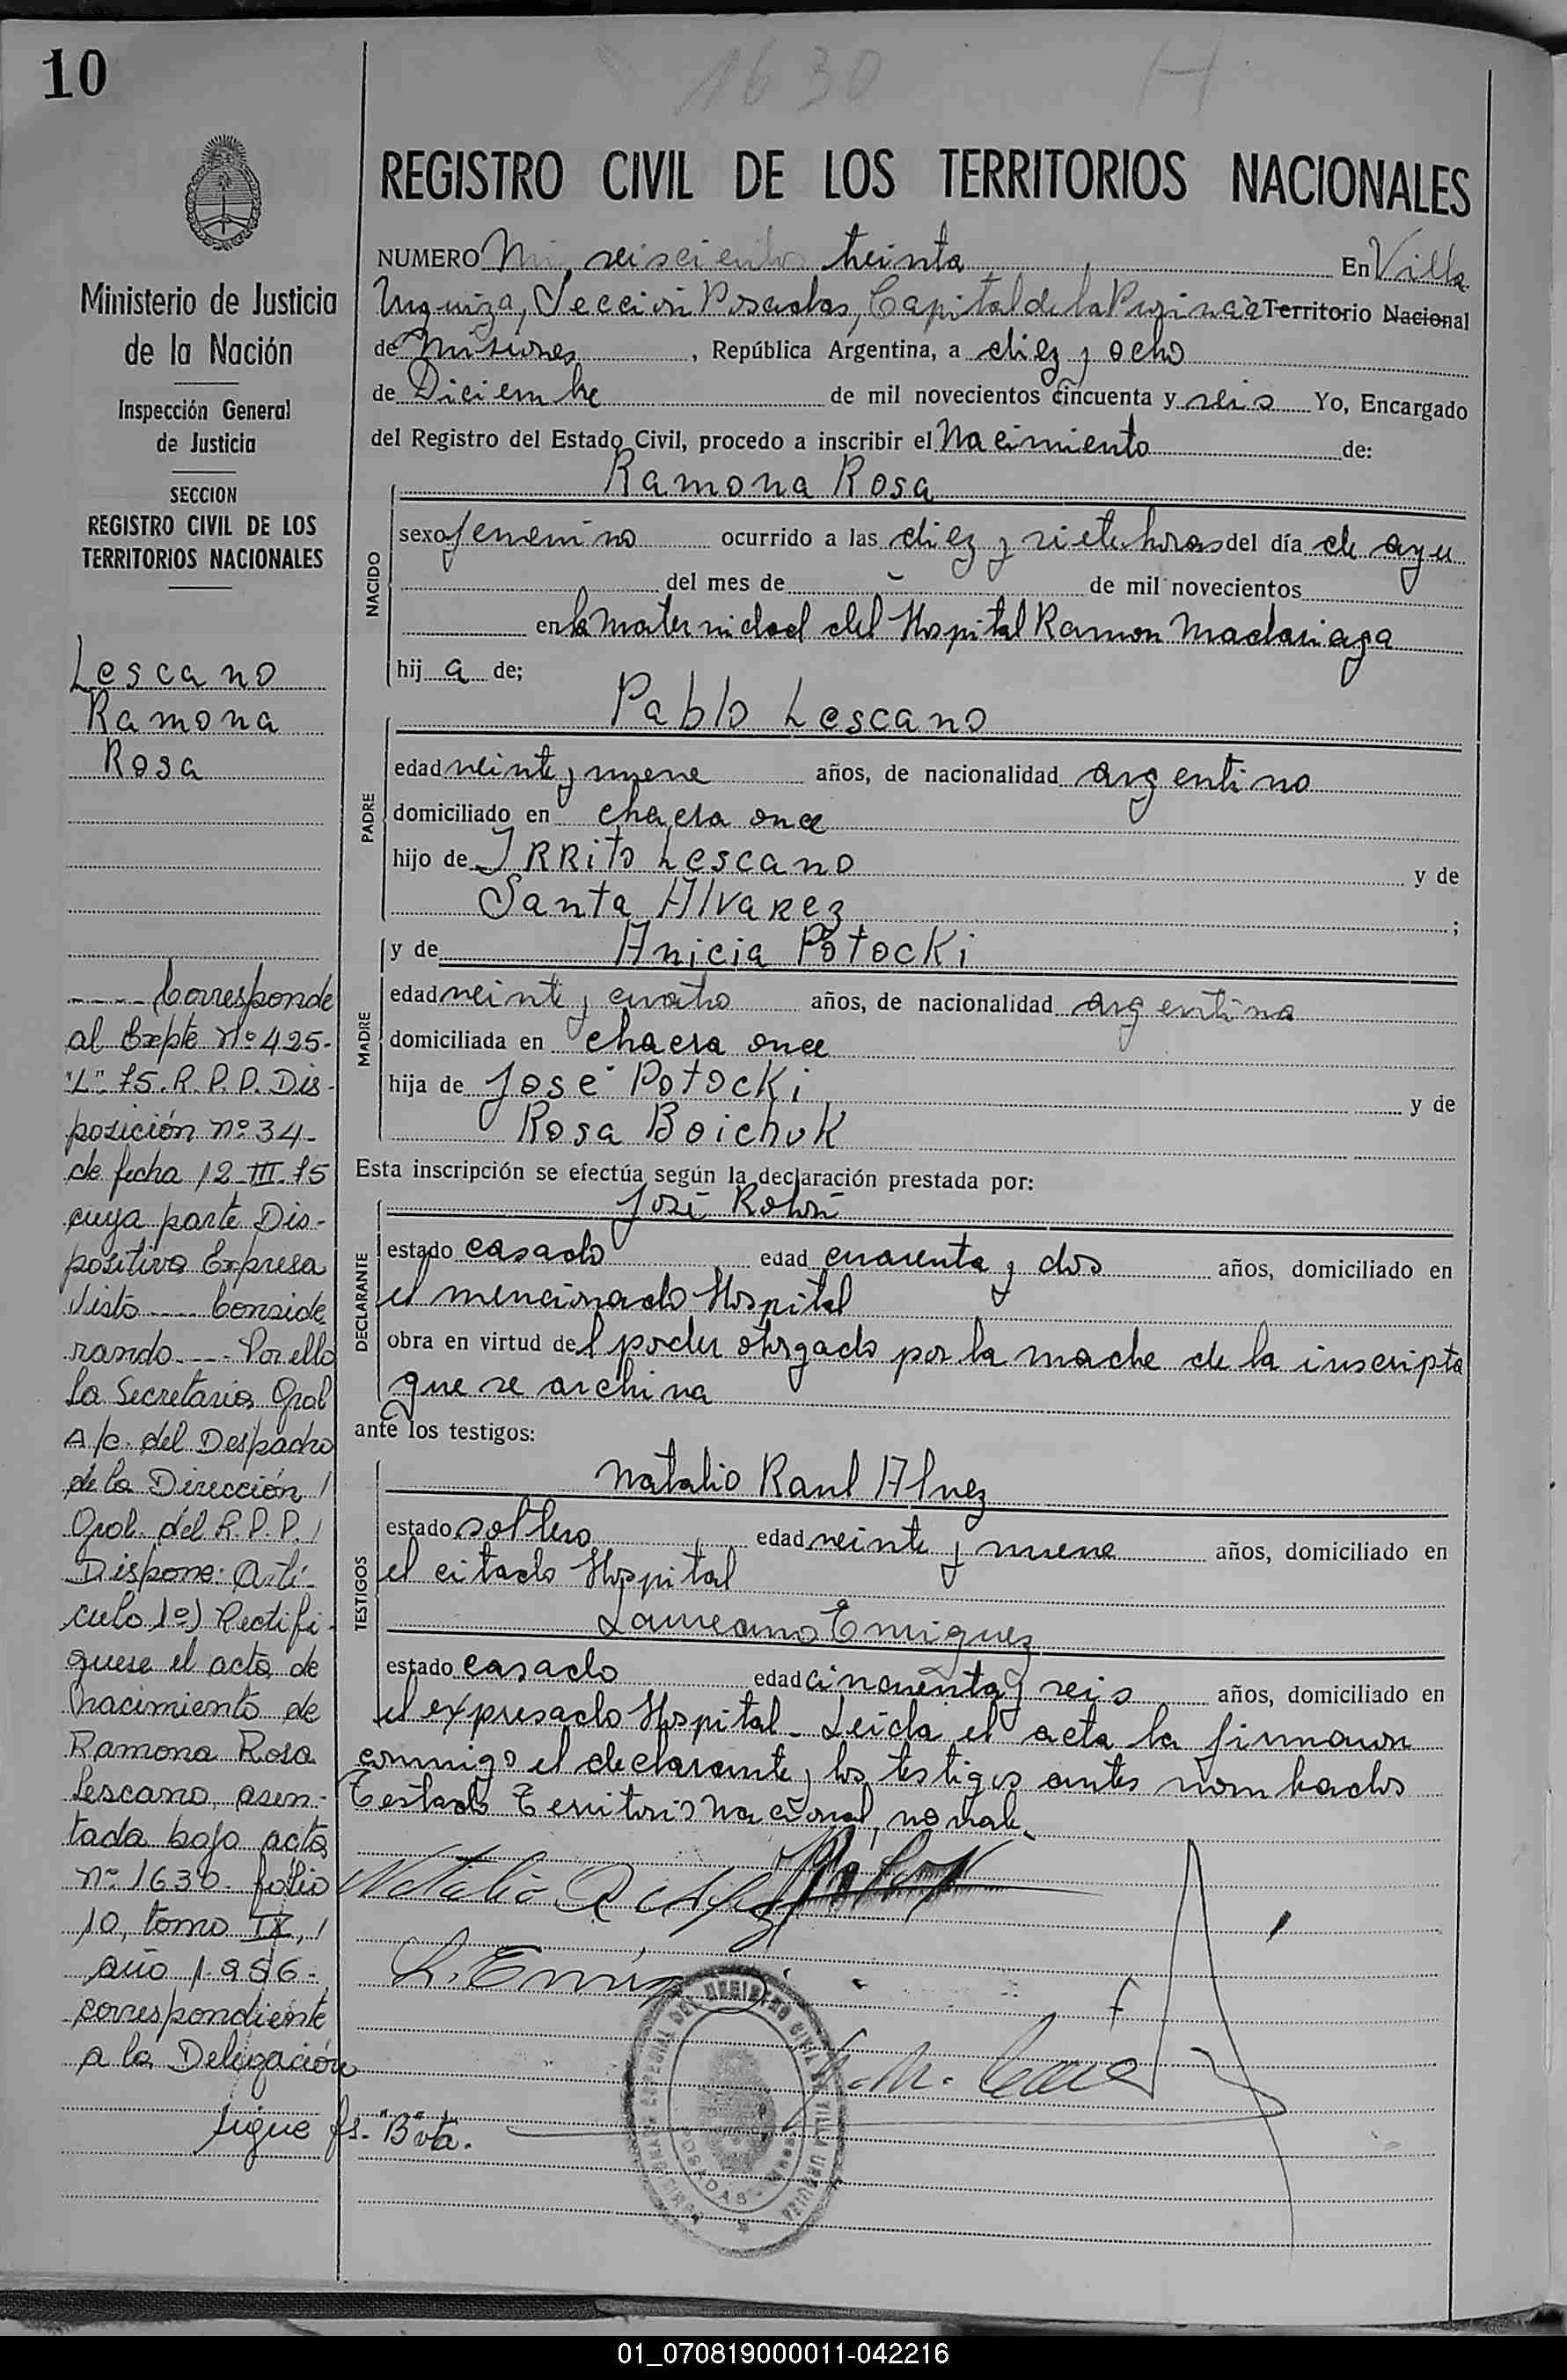 10
1630 H
REGISTRO CIVIL DE LOS TERRITORIOS NACIONALES
Ministerio de Justicia
de la Nación
Inspección General
de Justicia
SECCION
REGISTRO CIVIL DE LOS
TERRITORIOS NACIONALES
Lescano
Ramona
Rosa
---- Corresponde
al Expte Nº 425-
"L"-75. R.P.P. Dis-
posición nº 34-
de fecha 12-III-75
cuya parte Dis-
positiva Expresa
Visto ---- Conside
rando ---- Por ello
La Secretaria Gral
A/c. del Despacho
de la Dirección /
Gral. del R.P.P. /
Dispone: Artí-
culo 1º) Rectifi-
quese el acta de
nacimiento de
Ramona Rosa
Lescano, asen-
tada bajo acta
nº 1630. folio
10, tomo IX, /
año 1.956-
correspondiente
a la Delegación
sigue fs. "B" vta.
NUMERO Mil seiscientos treinta En Villa
Urquiza, Sección Posadas, Capital de la Provincia Territorio Nacional
de Misiones, República Argentina, a diez y ocho
de Diciembre de mil novecientos cincuenta y seis Yo, Encargado
del Registro del Estado Civil, procedo a inscribir el Nacimiento de:
NACIDO
Ramona Rosa
sexo femenino ocurrido a las diez y siete horas del día de ayer
del mes de - de mil novecientos
en la maternidad del Hospital Ramon Madariaga
hij a de;
PADRE
Pablo Lescano
edad veinte y nueve años, de nacionalidad argentino
domiciliado en chacra once
hijo de Irrito Lescano y de
Santa Alvarez ;
MADRE
y de Anicia Potocki
edad veinte y cuatro años, de nacionalidad argentina
domiciliada en chacra once
hija de José Potocki y de
Rosa Boichuk
Esta inscripción se efectúa según la declaración prestada por:
DECLARANTE
José
estado casado edad cuarenta y dos años, domiciliado en
el mencionado Hospital
obra en virtud del poder otorgado por la madre de la inscripta
que se archiva
ante los testigos:
TESTIGOS
Natalio Raul Alvez
estado soltero edad veinte y nueve años, domiciliado en
el citado Hospital
Laureano Emiguez
estado casado edad cincuenta y seis años, domiciliado en
el expresado Hospital - Leida el acta la firmaron
conmigo el declarante y los testigos antes nombrados
Testado Territorio Nacional, no vale.
Natalio R Alvez
L. Emig
DEL REGISTRO CIVIL
VILLA URQUIZA
POSADAS
01_070819000011-042216